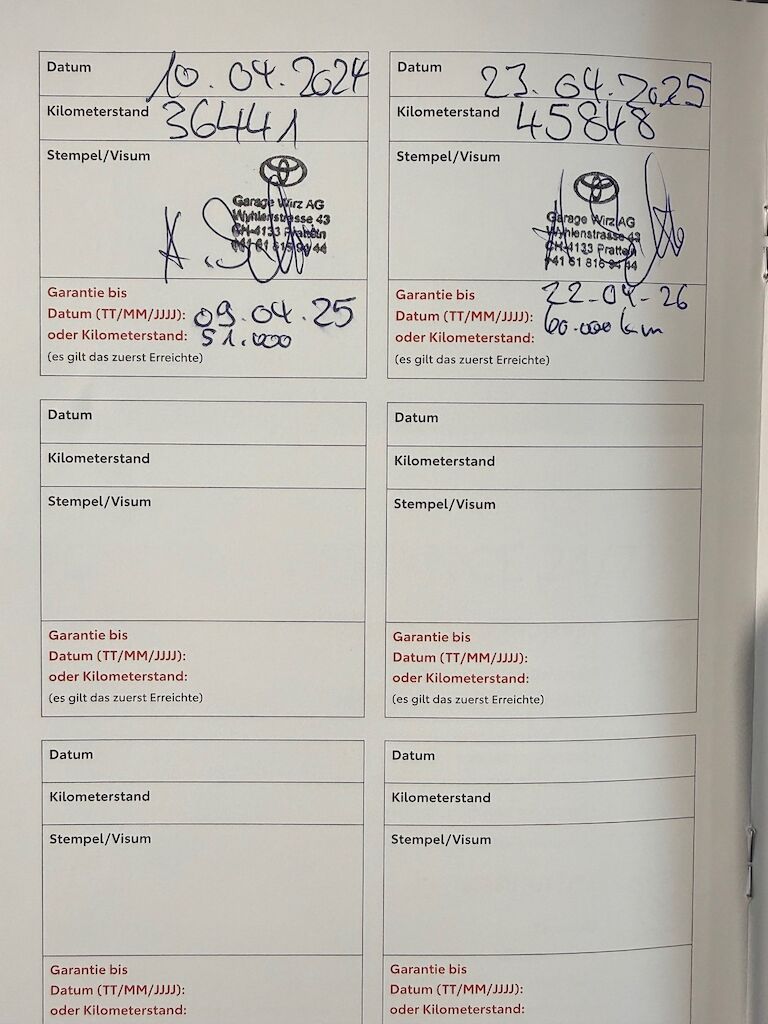 Datum 10.04.2024
Kilometerstand 36441
Stempel/Visum
Garage Wirz AG
Wyhlenstrasse 43
CH-4133 Pratteln
+41 61 815 94 44
Garantie bis
Datum (TT/MM/JJJJ): 09.04.25
oder Kilometerstand: 51.000
(es gilt das zuerst Erreichte)
Datum 23.04.2025
Kilometerstand 45848
Stempel/Visum
Garage Wirz AG
Wyhlenstrasse 43
CH-4133 Pratteln
+41 61 816 94 44
Garantie bis
Datum (TT/MM/JJJJ): 22-04-26
oder Kilometerstand: 60.000 km
(es gilt das zuerst Erreichte)
Datum
Kilometerstand
Stempel/Visum
Garantie bis
Datum (TT/MM/JJJJ):
oder Kilometerstand:
(es gilt das zuerst Erreichte)
Datum
Kilometerstand
Stempel/Visum
Garantie bis
Datum (TT/MM/JJJJ):
oder Kilometerstand:
(es gilt das zuerst Erreichte)
Datum
Kilometerstand
Stempel/Visum
Garantie bis
Datum (TT/MM/JJJJ):
oder Kilometerstand:
Datum
Kilometerstand
Stempel/Visum
Garantie bis
Datum (TT/MM/JJJJ):
oder Kilometerstand: